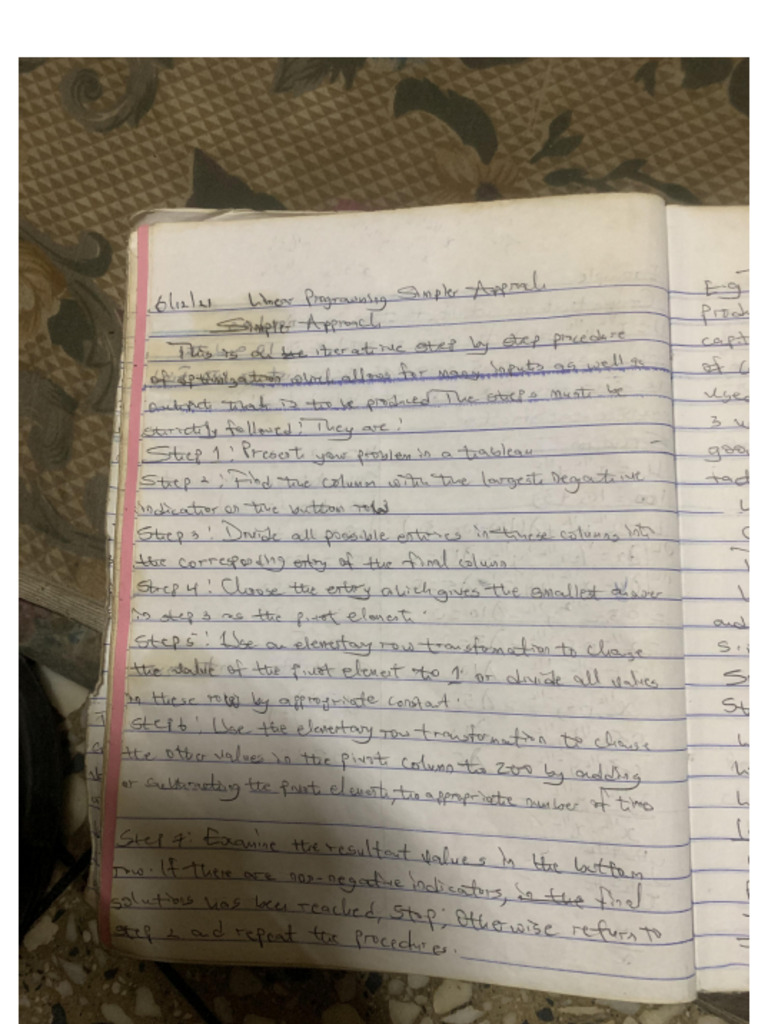 6/12/21 Linear Programming Simplex Approach
Simplex Approach
This is an iterative step by step procedure
of optimization which allows for many inputs as well as
output that is to be produced. The steps must be
strictly followed: They are:
Step 1: Present your problem in a tableau
Step 2: Find the column with the largest negative
indicator on the button row
Step 3: Divide all possible enteries in these columns into
the corresponding entry of the final column
Step 4: Choose the entry which gives the smallest
in step 3 as the pivot element.
Step 5: Use an elementary row transformation to change
the value of the pivot element to 1 or divide all values
in these row by appropriate constant.
Step 6: Use the elementary row transformation to change
the other values in the pivot column to zero by adding
or subtracting the pivot element, to appropriate number of time
Step 7: Examine the resultant values in the buttom
row. If there are non-negative indicators, in the final
solutions has been reached, stop; Otherwise return to
step 2 and repeat the procedures.
E-g
prod
capit
of
used
3
goo
tad
and
S.
S
St